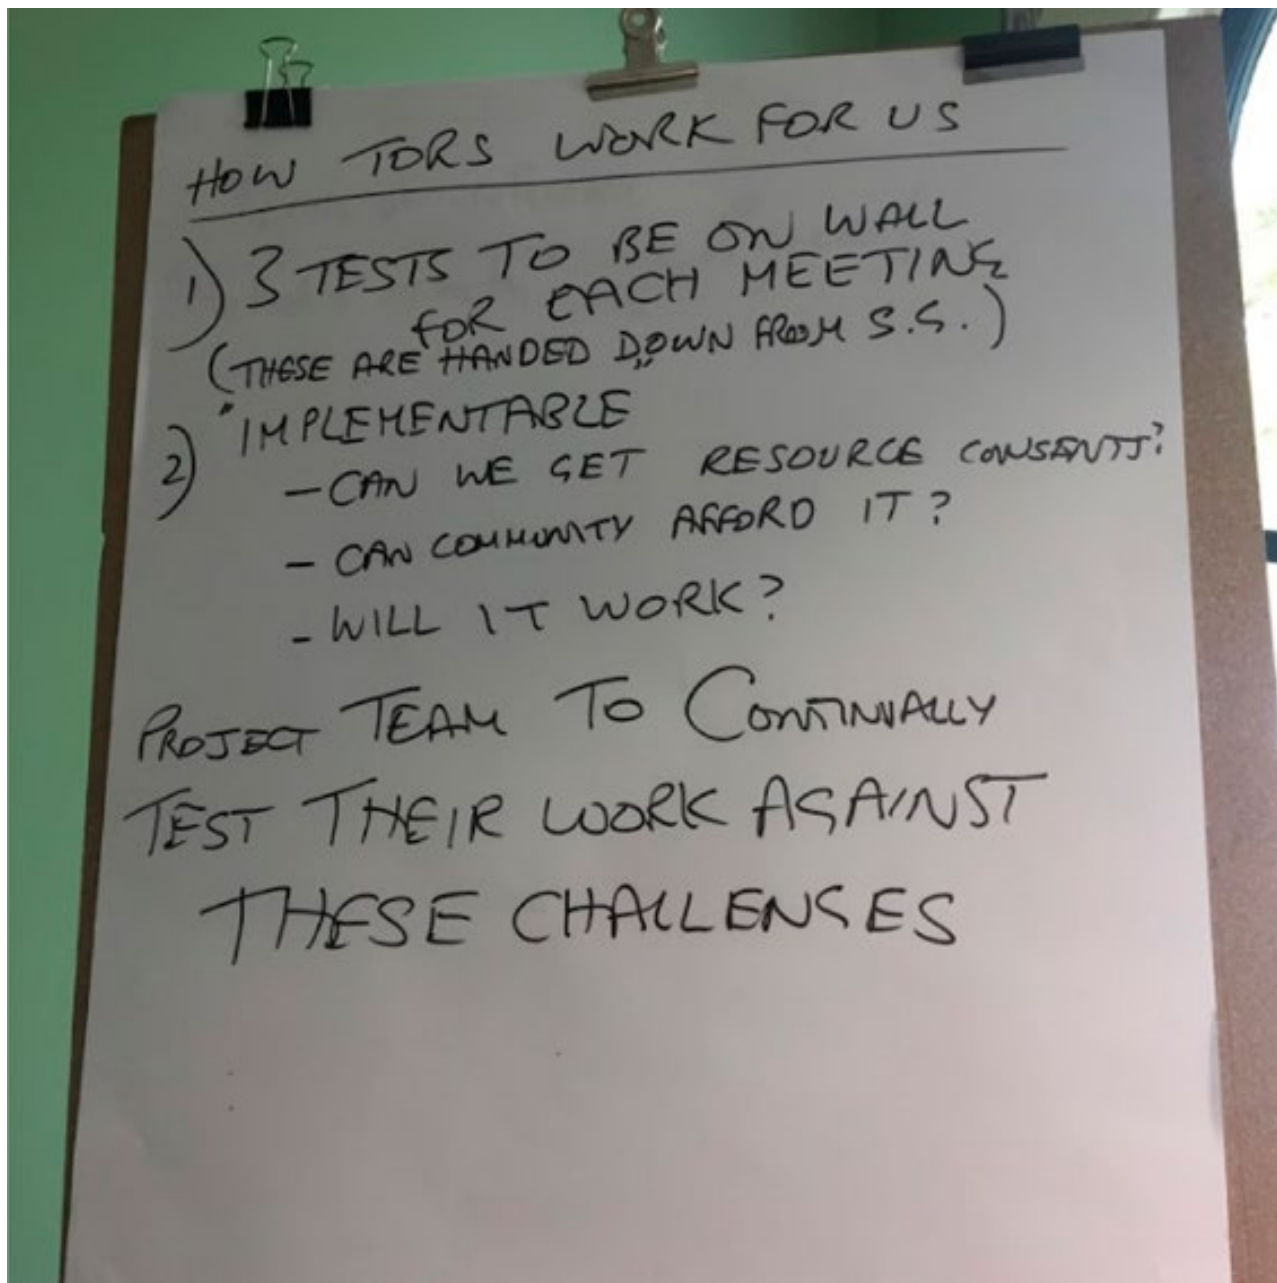 HOW TORS WORK FOR US
1) 3 TESTS TO BE ON WALL
FOR EACH MEETING
(THESE ARE HANDED DOWN FROM S.G.)
2) "IMPLEMENTABLE"
- CAN WE GET RESOURCE CONSENTS?
- CAN COMMUNITY AFFORD IT?
- WILL IT WORK?
PROJECT TEAM TO CONTINUALLY
TEST THEIR WORK AGAINST
THESE CHALLENGES